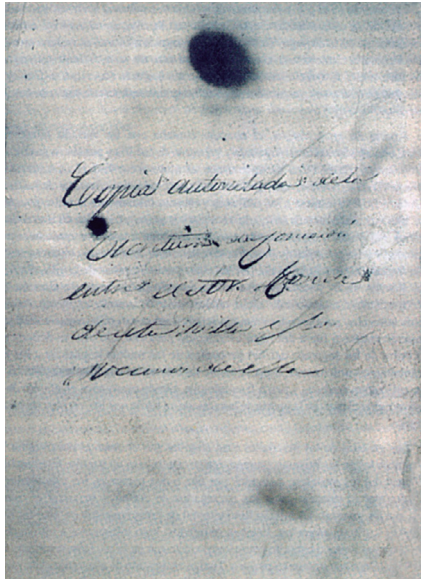 Copia autorisada de la
Escritura de
entre el Sr. Conde
de esta Villa y los
vecinos de ella